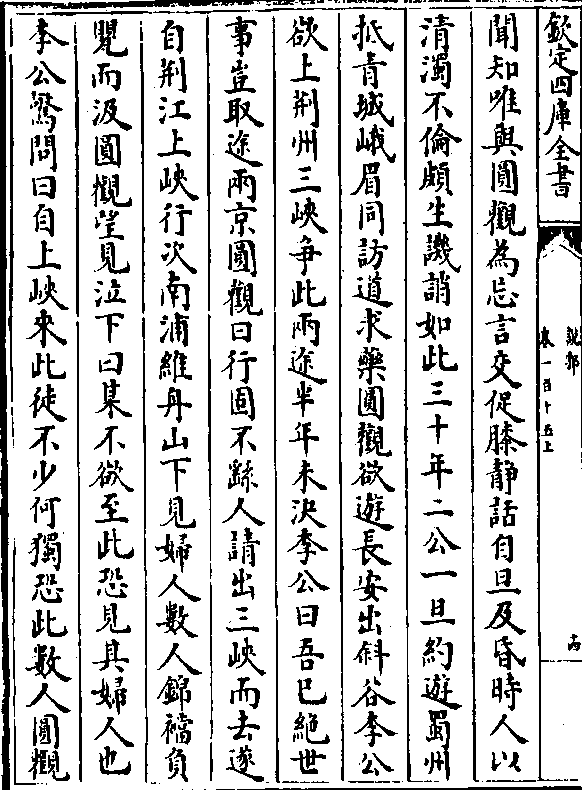 欽定四庫全書
說郛
卷一百十五上
聞知唯與圓觀為忘言交促膝静話自旦及昏時人以
清濁不倫頗生譏誚如此三十年二公一旦約遊蜀州
抵青城峨眉同訪道求藥圓觀欲遊長安出斜谷李公
欲上荆州三峽争此兩途半年未決李公曰吾已絶世
事豈取途兩京圓觀曰行固不繇人請出三峽而去遂
自荆江上峽行次南浦維舟山下見婦人數人錦襠負
甖而汲圓觀望見泣下曰某不欲至此恐見其婦人也
李公驚問曰自上峽來此徒不少何獨恐此數人圓觀